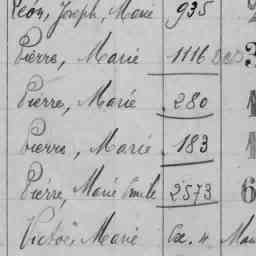 Léon, Joseph, Marie 935
Pierre, Marie 1116
Pierre, Marie 280
Pierre, Marie 183
Pierre, Marie Emile 2573 6
Victor, Marie